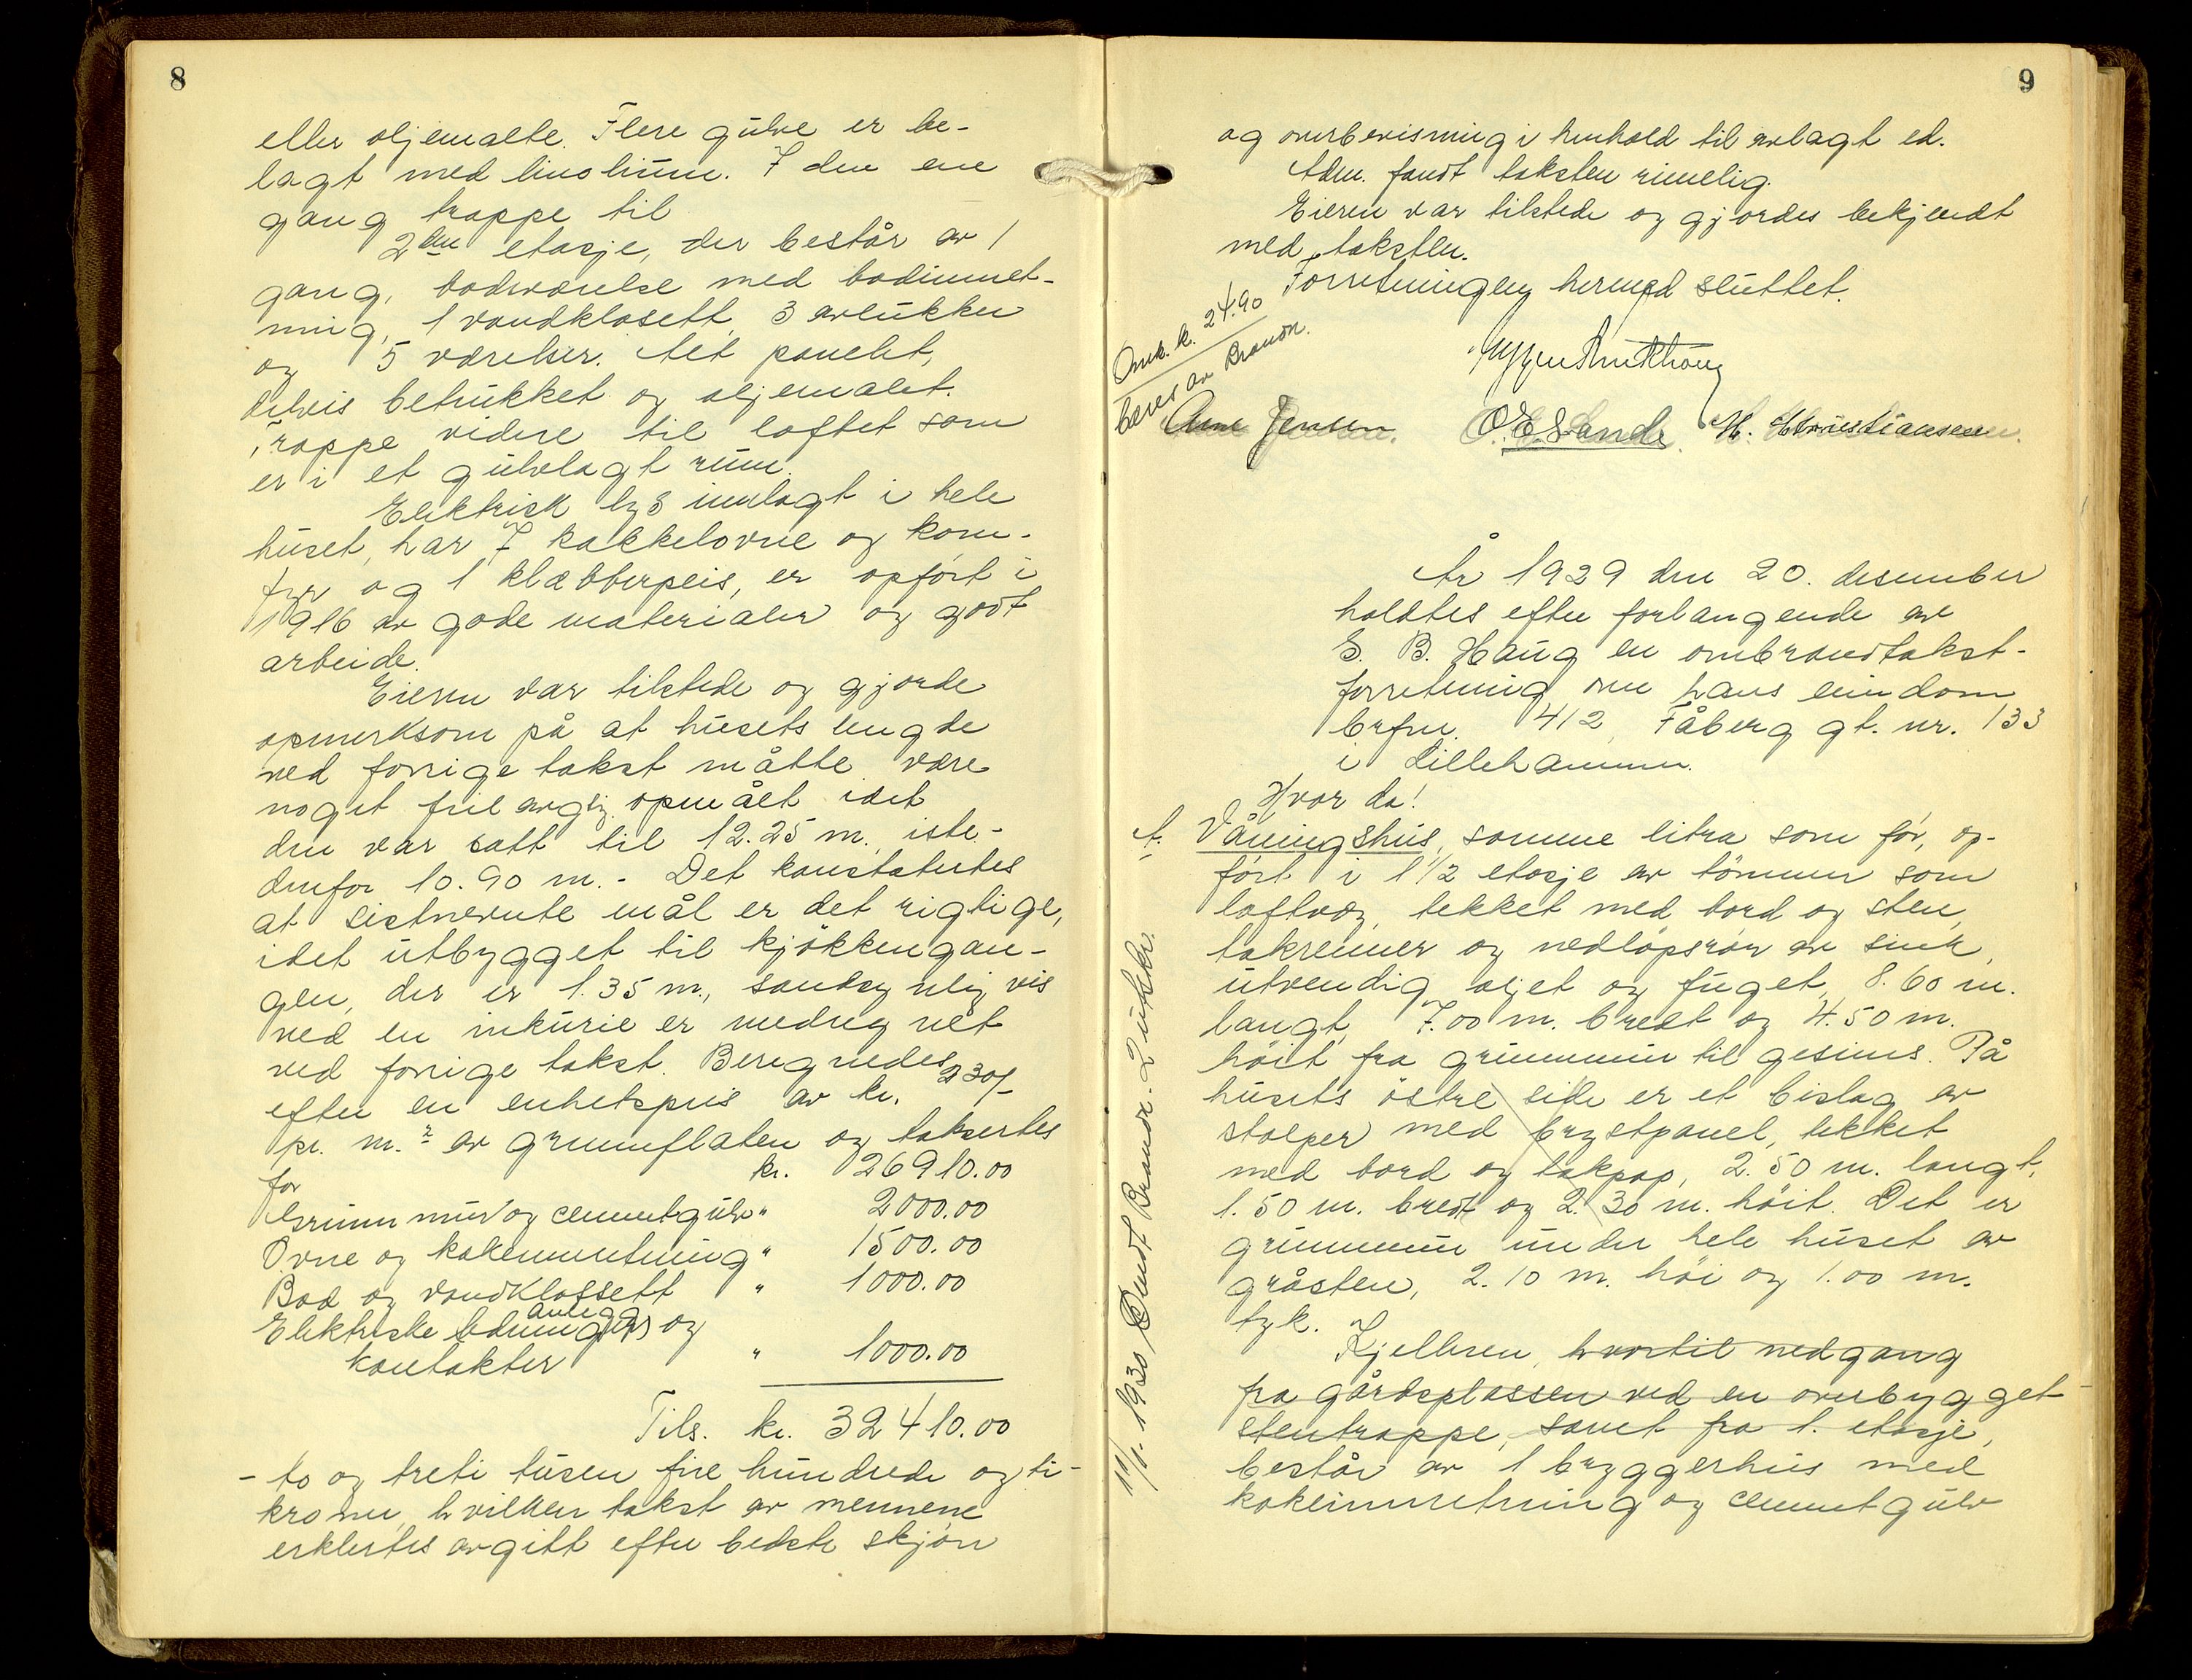 8
eller oljemalte. Flere gulve er be-
lagt med linolium. I den ene
gang trappe til
2den etasje, der består av 1
gang, badeværelse med badeinnret-
ning, 1 vandklosett, 3 avlukker
og 5 værelser. Alt panelt,
delvis betrukket og oljemalet.
Trappe videre til loftet som
er i et gulvlagt rum.
Elektrisk lys innlagt i hele
huset, har 7 kakkelovne og kom-
fyr og 1 klæbberpeis, er opført i
1916 av gode materialer og godt
arbeide.
Eieren var tilstede og gjorde
opmerksom på at husets lengde
ved forrige takst måtte være
noget feilagtig opmålt idet
den var satt til 12.25 m. iste-
denfor 10.90 m. - Det konstatertes
at sistnevnte mål er det rigtige,
idet utbygget til kjøkkengan-
gen, der er 1.35 m., sandsynligvis
ved en inkurie er medregnet
ved forrige takst. Beregnedes
efter en enhetspris av kr. 230/-
pr. m.² av grunnflaten og taksertes
for kr. 26910.00
Grunnmur og cementgulv " 2000.00
Ovne og kokeinnretning " 1500.00
Bad og vandklossett " 1000.00
anlegg
Elektriske ledninger og
kontakter " 1000.00
Tils. kr. 32410.00
- to og treti tusen fire hundrede og ti -
kroner, hvilken takst av mennene
erklertes avgitt efter bedste skjøn
9
og overbevisning i henhold til avlagt ed.
Adm. fandt taksten rimelig.
Eieren var tilstede og gjordes bekjendt
med taksten.
Forretningen hermed sluttet.
Omk. kr. 24.90
bæres av Brandk.
Arne Jensen. O. E. Sande. H. Christiansen.
År 1929 den 20. desember
holdtes efter forlangende av
S. B. Haug en ombrandtakst-
forretning over hans eiendom
brfnr. 412, Fåberg gt. nr. 133
i Lillehammer.
Hvor da!
A. Våningshus, samme litra som før, op-
ført i 1 1/2 etasje av tømmer som
loftvæg, tekket med bord og sten,
takrenner og nedløpsrør av sink,
utvendig oljet og fuget, 8.60 m.
langt, 7.00 m. bredt og 4.50 m.
høit fra grunnmur til gesims. På
husets østre side er et bislag av
stolper med brystpanel, tekket
med bord og takpap, 2.50 m. langt,
1.50 m. bredt og 2.30 m. høit. Det er
grunnmur under hele huset av
gråsten, 2.10 m. høi og 1.00 m.
tyk.
Kjelleren, hvortil nedgang
fra gårdsplassen ved en overbygget
stentrappe, samt fra 1. etasje,
består av 1 bryggerhus med
kokeinnretning og cementgulv
11/1. 1930 Sendt Brandk. 2 utskr.